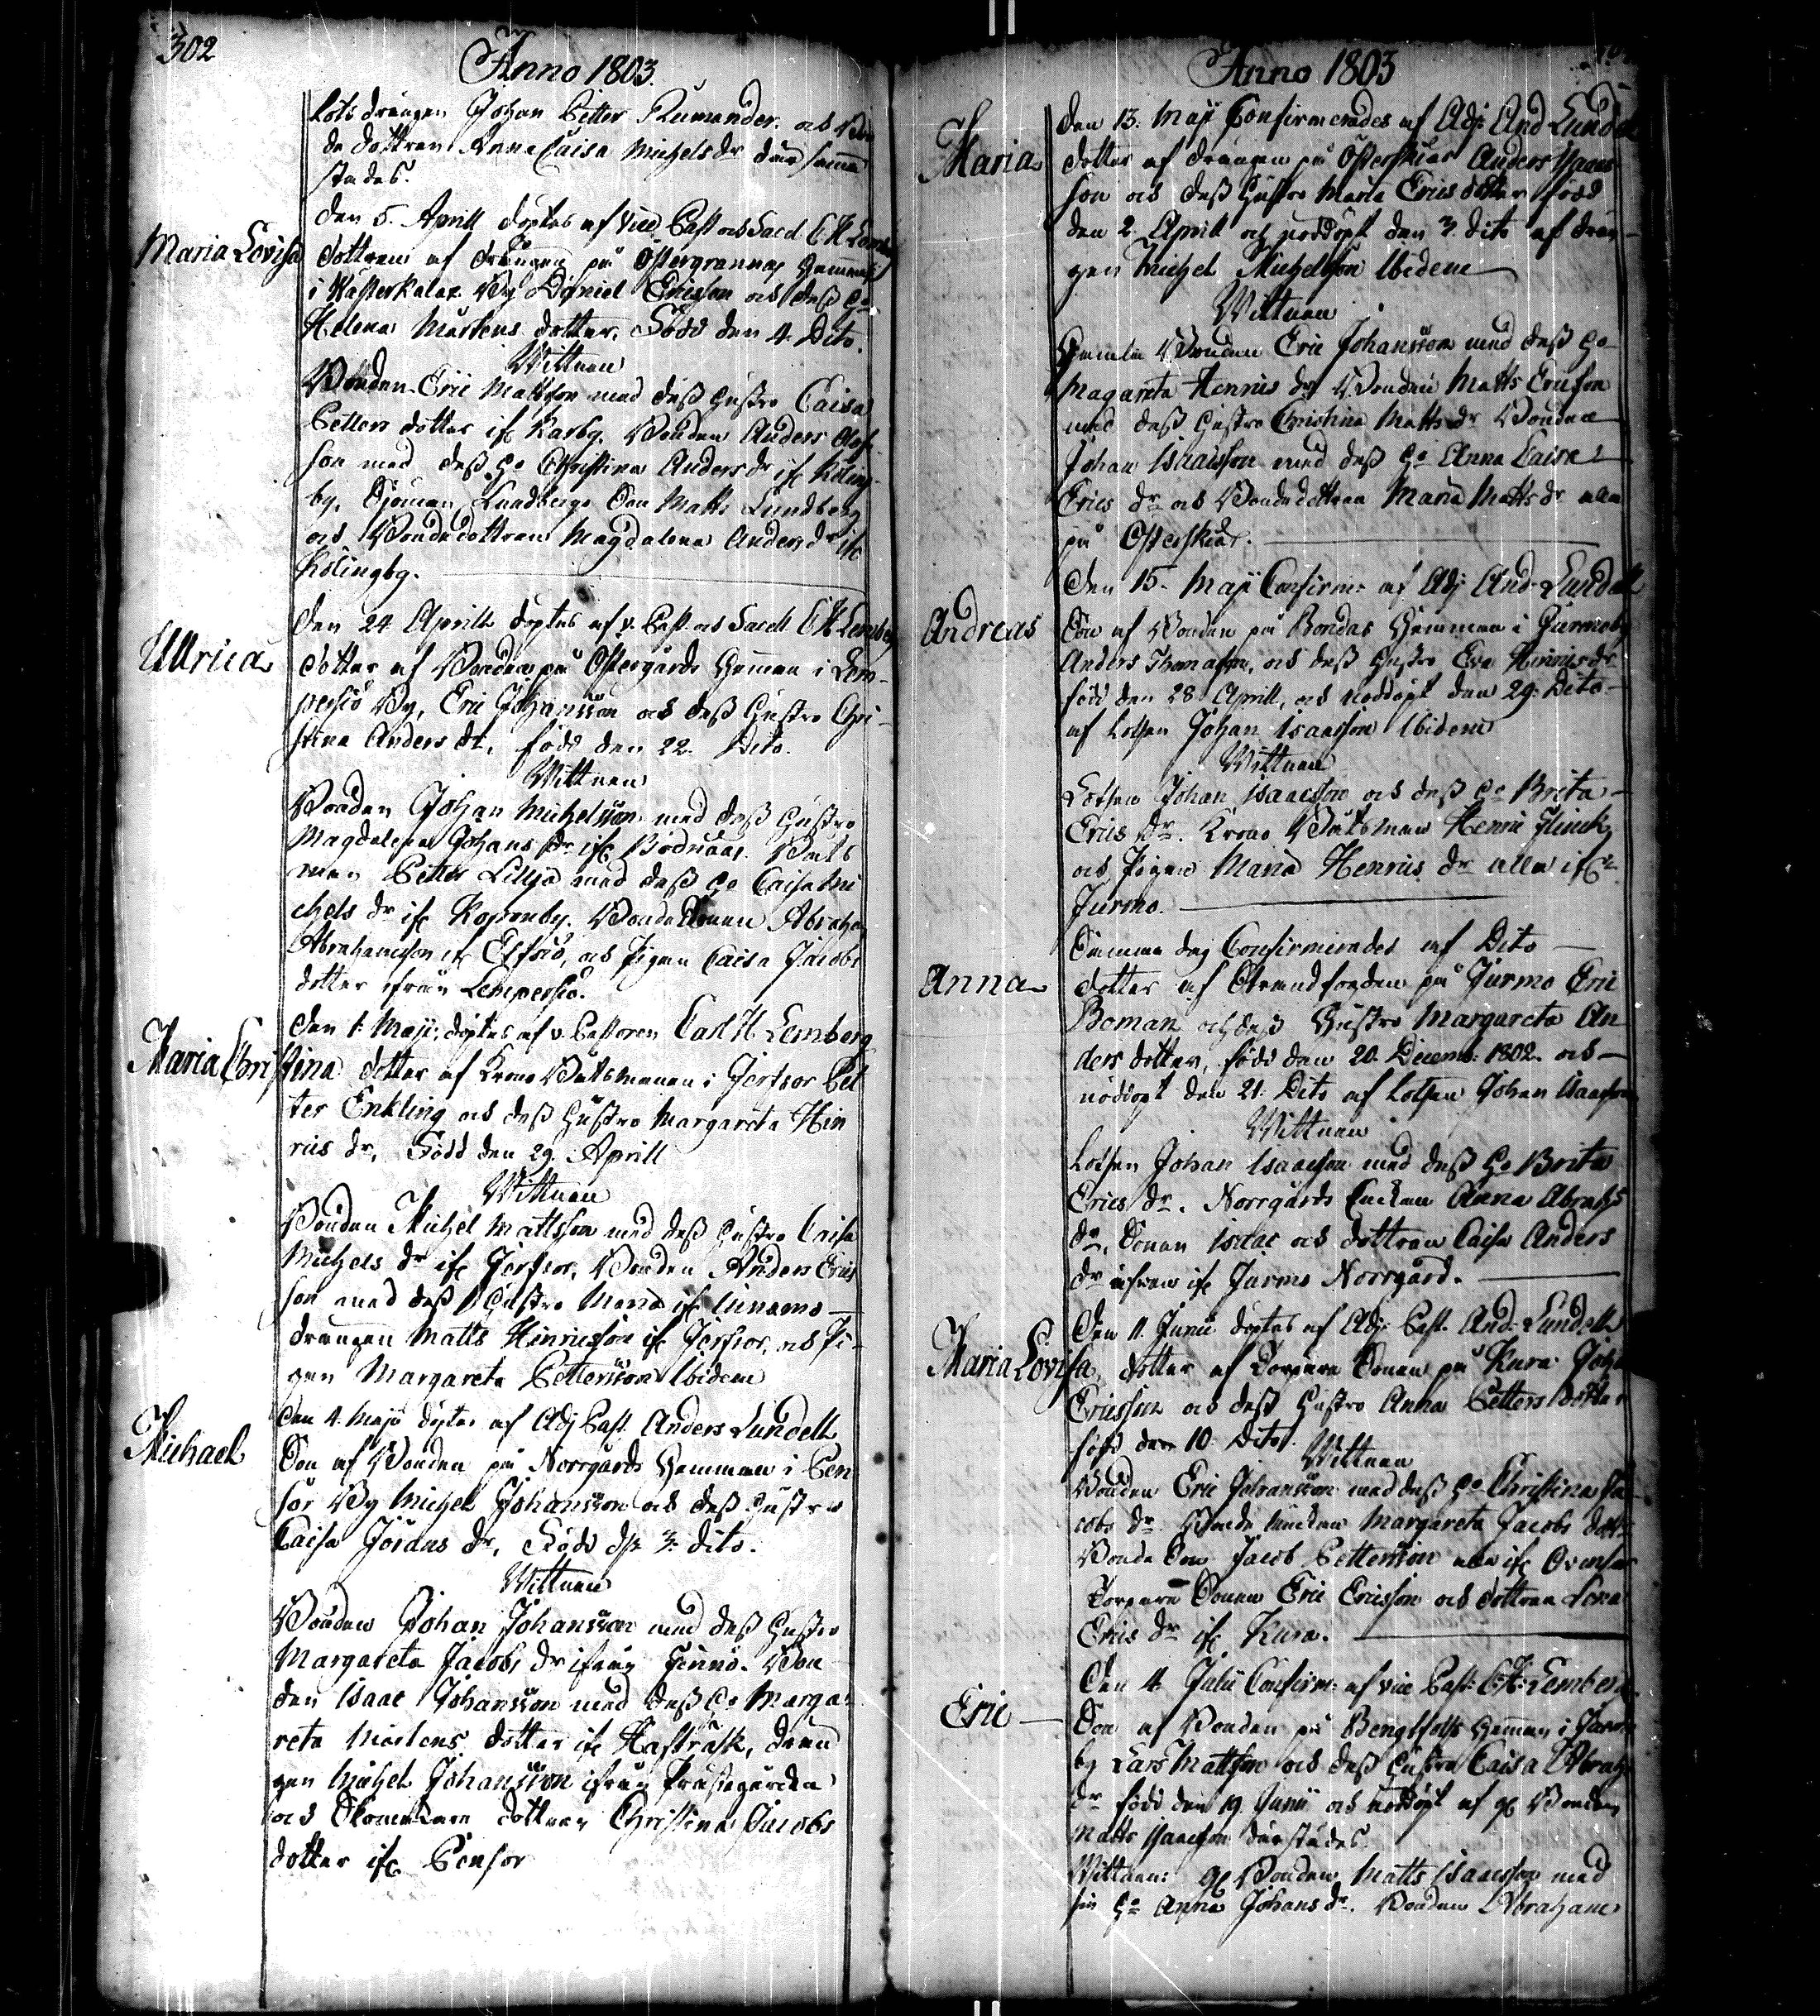 302
Anno 1803.
Lots drängen Johan Petter Rumander. och Bon
de dottren Anna Caisa Michels dr där samma
stades.
Maria Lovisa
den 5. Aprill döptes af Vice Past och Sacell C H Lemberg
dottren af drängen på Östergrannas Hemman
i Wästerkalax By Daniel Ericsson och dess Ho
Helena Mårtens dotter, Född den 4. Dito.
Wittnen
Bonden Eric Mattsson med dess Hustro Caisa
Petters dotter ifr Karby. Bonden Anders Olofs
son med dess Ho Christina Anders dr ifr Köling
by, Sjöman Lundbergs Son Matts Lundberg
och Bondedottren Magdalena Anders dr ifr
Kölingby.
Ulrica
den 24 Aprill döptes af v. Past. och Sacell C H Lemberg
dotter af Bonden på Östergårds Hemman i Lem-
persiö By, Eric Johansson och dess Hustro Chri-
stina Anders dr, född den 22. Dito.
Wittnen
Bonden Johan Michelsson med dess Hustro
Magdalena Johans dr ifr Bodnäs. Båts
man Petter Lillja med dess Ho Caisa Mi
chels dr ifr Koponby. Bonde Sonen Abraham
Abrahamsson ifr Elfsiö, och Pigan Caisa Jacobs
dotter ifrån Lempersiö.
Maria Christina
den 1. Maji döptes af v. Pastoren Carl H. Lemberg
dotter af Krono Båtsmannen i Jerfsor Pet
ter Enkling och dess Hustro Margareta Hin
rics dr, Född den 29. Aprill
Wittnen
Bonden Michel Mattsson med dess Hustro Caisa
Michels dr ifr Jerfsor, Bonden Anders Erics
son med dess Hustro Maria ifr Unamo
drängen Matts Hinricsson ifr Jerfsor, och Pi-
gan Margareta Pettersson Ibidem
Michael
den 4. Maji döptes af Adj Past. Anders Lundell
Son af Bonden på Norrgårds Hemman i Pen
sor By Michel Johansson och dess Hustro
Caisa Jörans dr, Född d. 3. dito.
Wittnen
Bonden Johan Johansson med dess Hustro
Margareta Jacobs dr ifrån Finnö. Bon
den Isaac Johansson med dess Ho Marga-
reta Mårtens dotter ifr Hafträsk, drän
gen Michel Johansson ifrån Prästegården
och Skomakare dottren Christina Jacobs
dotter ifr Pensor
Anno 1803
Maria
den 13. Maji Confirmerades af Adj: And Lundell
dotter af drängen på Österskiär Anders Isaacs
son och dess Hustro Maria Erics dotter född
den 2. Aprill och nöddöpt den 3. dito af drän-
gen Michel Michelsson Ibidem
Wittnen
Gamla Bonden Eric Johansson med dess Ho
Magareta Henrics dr Bonden Matts Ericsson
med dess Hustro Christina Matts dr Bonden
Johan Isaacsson med dess Ho Anna Caisa
Erics dr och Bondedottren Maria Matts dr alla
på Österskiär.
Andreas
Den 15. Maji Confirm: af Adj And. Lundell
Son af Bonden på Bondas Hemman i Jurmoby
Anders Thomasson, och dess Hustro Eva Hinrics dr
född den 28. Aprill, och nöddöpt den 29. Dito
af Lotsen Johan Isaacsson Ibidem
Wittnen
Lotsen Johan Isaacsson och dess Ho Brita
Erics dr. Krono Båtsman Henric Flinck,
och Pigan Maria Henrics dr alla ifr
Jurmo.
Anna
Samma dag Confirmerades af Dito
dotter af Strandfogden på Jurmo Eric
Boman och dess Hustro Margareta An
ders dotter, född den 20. Decemb: 1802. och
nöddöpt den 21. Dito af Lotsen Johan Isaacsson
Wittnen
Lotsen Johan Isaacsson med dess Ho Brita
Erics dr. Norrgårds Enckan Anna Abrahs
dr, Sonen Isaac och dottren Caisa Anders
dr ifr Jurmo Norrgård.
Maria Lovisa
Den 11. Junii döptes af Adj: Past. And. Lundell
dotter af Torpare Sonen på Kura Johan
Ericsson och dess Hustro Anna Petters dotter
född den 10. Dito.
Wittnen
Bonden Eric Johansson med dess Ho Christina Ja
cobs dr Bonde Enckan Margareta Jacobs dott:
Bonde Son Jacob Pettersson alla ifr Ovensor
Torpare Sonen Eric Ericsson och dottren Lena
Erics dr ifr Kura.
Eric
Den 4. Julii Confirm: af vice Past: C: H: Lemberg
Son af Bonden på Bengtsolls Hemman i Jurmo
by Lars Mattsson och dess Hustro Caisa Abrah
dr född den 19. Junii och nöddöpt af gl Bonden
Matts Isaacsson därstädes.
Wittnen: gl Bonden Matts Isaacsson med
sin Ho Anna Johans dr. Bonden Abraham